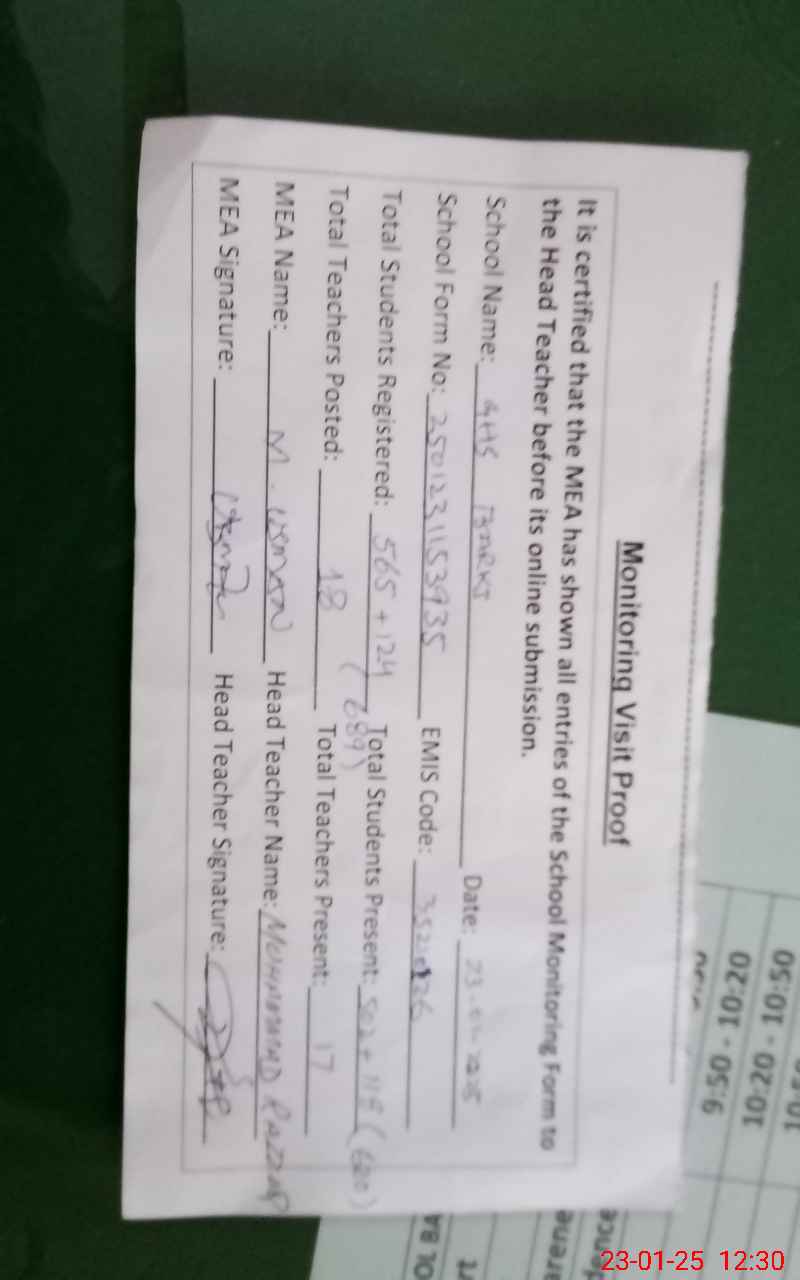 Monitoring Visit Proof
It is certified that the MEA has shown all entries of the School Monitoring Form to
the Head Teacher before its online submission.
School Name: GHS Date: 23-01-2025
School Form No: 2501231153935 EMIS Code:
Total Students Registered: 565 + 124 (689) Total Students Present: 502 + 118 (620)
Total Teachers Posted: 18 Total Teachers Present: 17
MEA Name: M. USMAN Head Teacher Name: MUHAMMAD
MEA Signature: Head Teacher Signature:
10:20 - 10:50
9:50 - 10:20
23-01-25 12:30